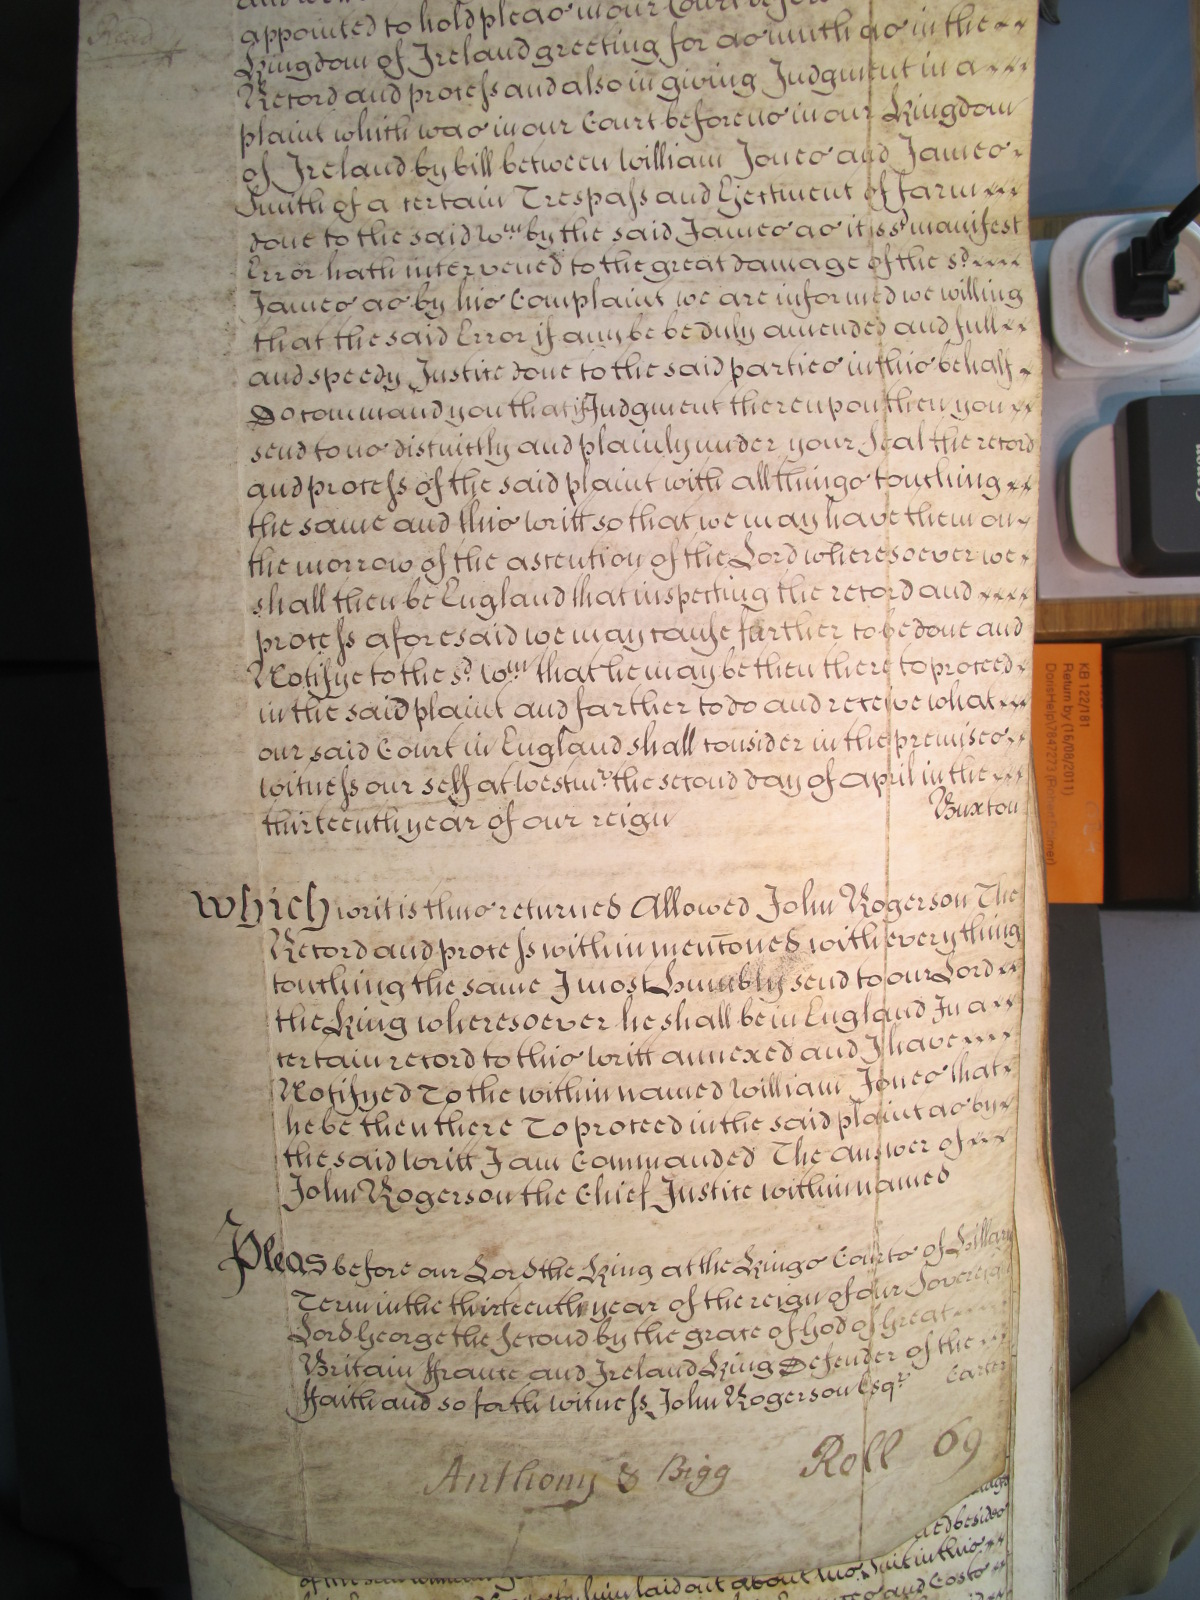 Read
appointed to hold pleas in our Court before
Kingdom of Ireland greeting for as much as in the
Record and process and also in giving Judgment in a
plaint which was in our Court before us in our Kingdom
of Ireland by bill between William Jones and James
Smith of a certain Trespass and Ejectment of farm
done to the said Wm by the said James as it is sd manifest
Error hath intervened to the great damage of the sd
James as by his Complaint we are informed we willing
that the said Error if any be be duly amended and full
and speedy Justice done to the said parties in this behalf
Do command you that if Judgment thereupon then you
send to us distinctly and plainly under your Seal the record
and process of the said plaint with all things touching
the same and this writt so that we may have them on
the morrow of the ascention of the Lord wheresoever we
shall then be England that inspecting the record and
process aforesaid we may cause further to be done and
Notifye to the sd Wm that he may be then there to proceed
in the said plaint and farther to do and receive what
our said Court in England shall consider in the premises
witness our self at Westmr the second day of april in the
thirteenth year of our reign
Buxton
Which writ is thus returned Allowed John Rogerson The
Record and process within mentoned with every thing
touching the same I most Humbly send to our Lord
the King wheresoever he shall be in England In a
certain record to this writt annexed and I have
Notifyed To the within named William Jones that
he be then there To proceed in the said plaint as by
the said Writt I am Commanded The answer of
John Rogerson the Chief Justice within named
Pleas before our Lord the King at the Kings Courts of Hillary
Term in the thirteenth year of the reign of our Sovereign
Lord George the Second by the grace of God of Great
Britain ffrance and Ireland King Defender of the
ffaith and so forth witness John Rogerson Esqr
Carter
Anthony & Bigg Roll 69
ed besides
laid out about his Suit in this
and Costs
Canon
KB 122/181
Return by (16/08/2011)